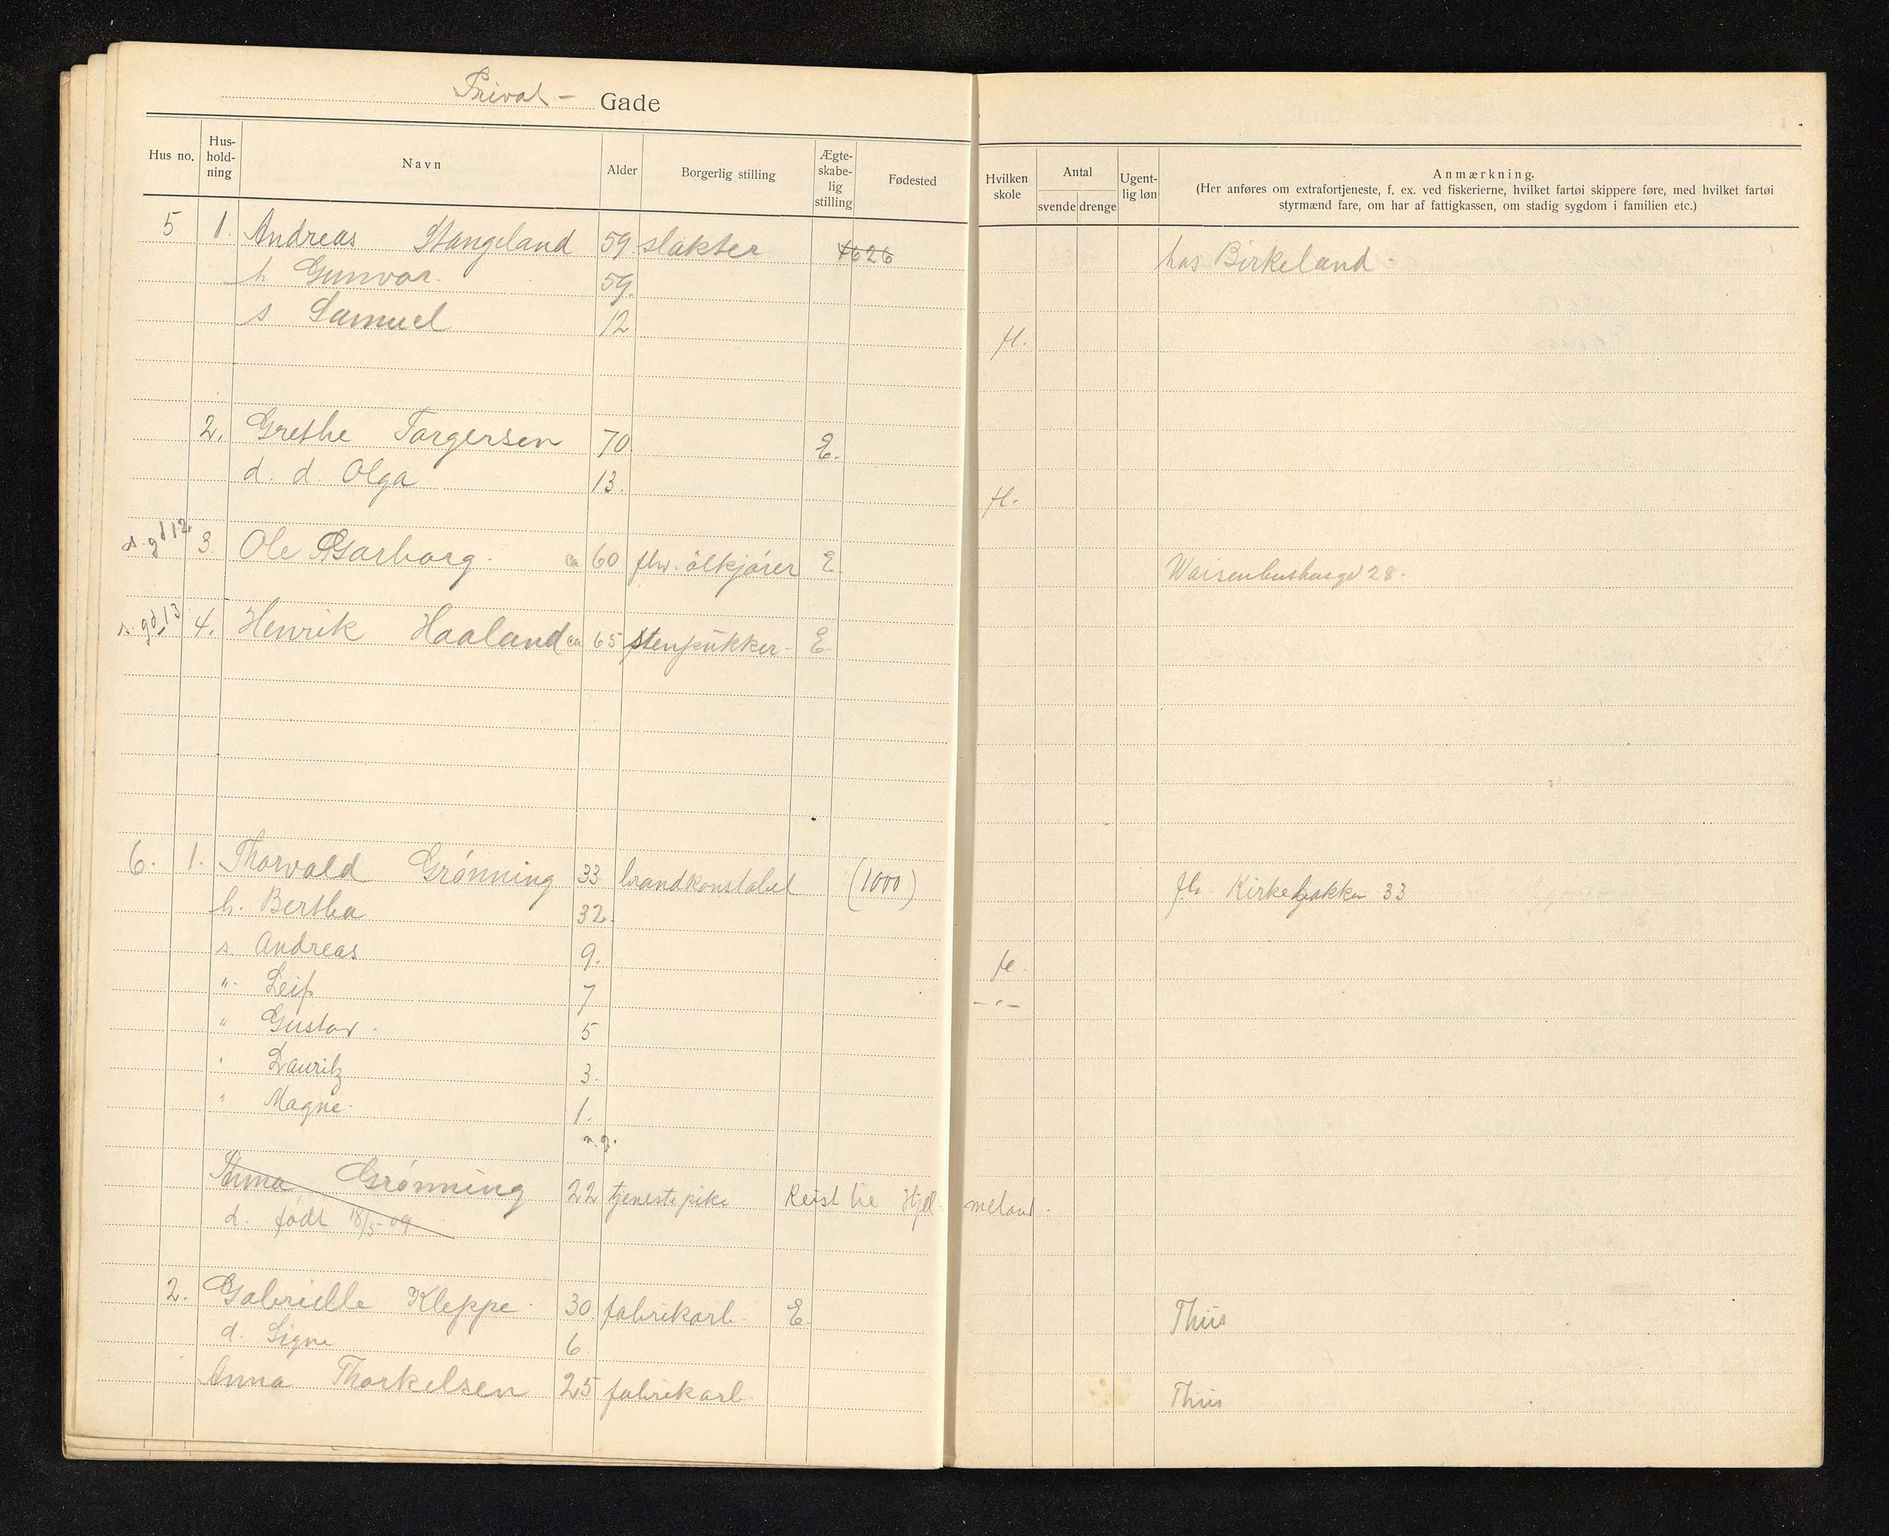 Privat- Gade
Hus no. Hus-hold-ning Navn Alder Borgerlig stilling Ægte-skabe-lig stilling Fødested Hvilken skole Antal svende drenge Ugent-lig løn Anmærkning.
(Her anføres om extrafortjeneste, f. ex. ved fiskerierne, hvilket fartøi skippere føre, med hvilket fartøi
styrmænd fare, om har af fattigkassen, om stadig sygdom i familien etc.)
5 1. Andreas Stangeland 59 slakter 1626 hos Birkeland
h Gunvor 59.
s Samuel 12 H.
2. Grethe Torgersen 70. E.
d. d. Olga 13. H.
3. Ole Garborg. ca 60 fhv. ølkjører E Waisenhushusgd 28.
4. Henrik Haaland ca 65 stenpukker E
6. 1. Thorvald Grønning 33 brandkonstabel (1000) fh Kirkebakken 33
h. Bertha 32.
s Andreas 9. fl.
" Leif 7 -"-
" Gustav. 5
" Lauritz 3.
" Magne. 1.
Anna Grønning 22 tjenestepike Reist til Hjel meland.
d. født 18/5 09
2. Gabrielle Kleppe 30 fabrikarb. E. Thiis
d. Signe 6
Anna Thorkelsen 25 fabrikarb. Thiis